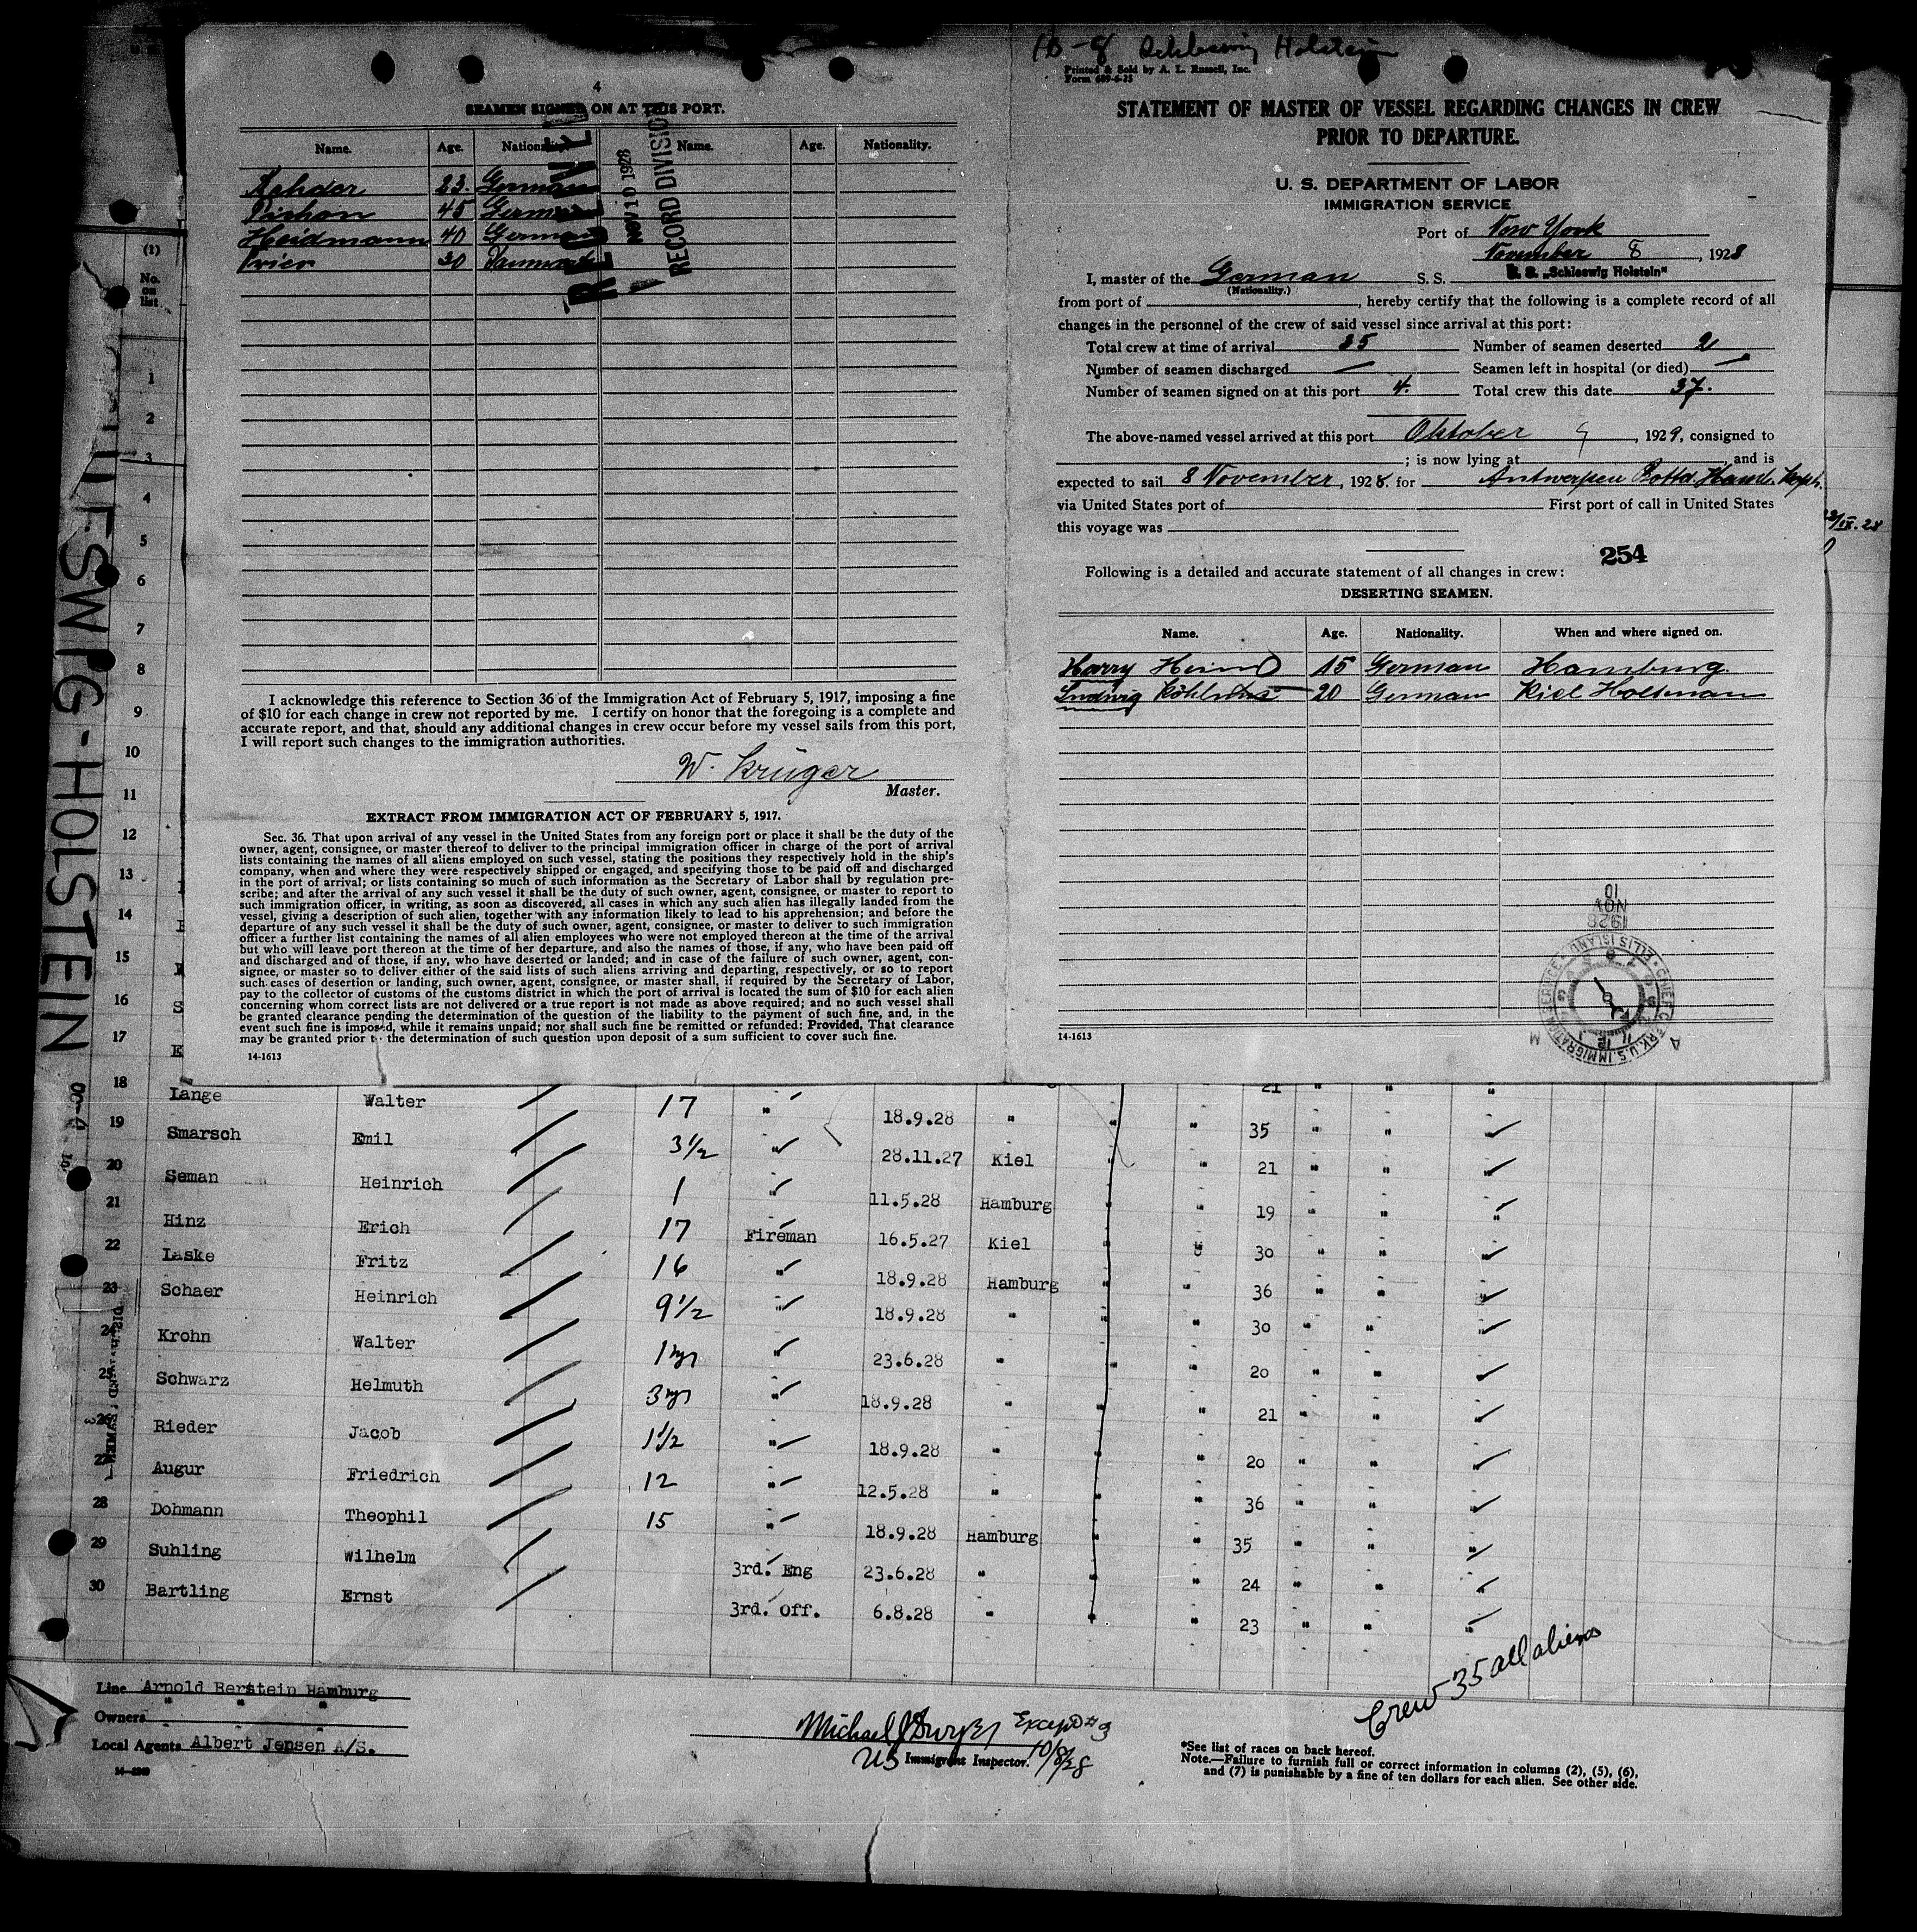 4
SEAMEN SIGNED ON AT THIS PORT.
Name. Age. Nationality. Name. Age. Nationality.
Rehder 23. German
45 German
Heidmann 40 German
30
RECEIVED
NOV 10 1928
RECORD DIVISION
I acknowledge this reference to Section 36 of the Immigration Act of February 5, 1917, imposing a fine
of $10 for each change in crew not reported by me. I certify on honor that the foregoing is a complete and
accurate report, and that, should any additional changes in crew occur before my vessel sails from this port,
I will report such changes to the immigration authorities.
W. Krüger
Master.
EXTRACT FROM IMMIGRATION ACT OF FEBRUARY 5, 1917.
Sec. 36. That upon arrival of any vessel in the United States from any foreign port or place it shall be the duty of the
owner, agent, consignee, or master thereof to deliver to the principal immigration officer in charge of the port of arrival
lists containing the names of all aliens employed on such vessel, stating the positions they respectively hold in the ship's
company, when and where they were respectively shipped or engaged, and specifying those to be paid off and discharged
in the port of arrival; or lists containing so much of such information as the Secretary of Labor shall by regulation pre-
scribe; and after the arrival of any such vessel it shall be the duty of such owner, agent, consignee, or master to report to
such immigration officer, in writing, as soon as discovered, all cases in which any such alien has illegally landed from the
vessel, giving a description of such alien, together with any information likely to lead to his apprehension; and before the
departure of any such vessel it shall be the duty of such owner, agent, consignee, or master to deliver to such immigration
officer a further list containing the names of all alien employees who were not employed thereon at the time of the arrival
but who will leave port thereon at the time of her departure, and also the names of those, if any, who have been paid off
and discharged and of those, if any, who have deserted or landed; and in case of the failure of such owner, agent, con-
signee, or master so to deliver either of the said lists of such aliens arriving and departing, respectively, or so to report
such cases of desertion or landing, such owner, agent, consignee, or master shall, if required by the Secretary of Labor,
pay to the collector of customs of the customs district in which the port of arrival is located the sum of $10 for each alien
concerning whom correct lists are not delivered or a true report is not made as above required; and no such vessel shall
be granted clearance pending the determination of the question of the liability to the payment of such fine, and, in the
event such fine is imposed, while it remains unpaid; nor shall such fine be remitted or refunded: Provided, That clearance
may be granted prior to the determination of such question upon deposit of a sum sufficient to cover such fine.
14-1613
10-8 Schleswig Holstein
Printed & Sold by A. L. Russell, Inc.
Form 689-6-25
STATEMENT OF MASTER OF VESSEL REGARDING CHANGES IN CREW
PRIOR TO DEPARTURE.
U. S. DEPARTMENT OF LABOR
IMMIGRATION SERVICE
Port of New York
November 8, 1928
I, master of the German S. S. S. S. „Schleswig Holstein"
(Nationality.)
from port of , hereby certify that the following is a complete record of all
changes in the personnel of the crew of said vessel since arrival at this port:
Total crew at time of arrival 35 Number of seamen deserted 2
Number of seamen discharged — Seamen left in hospital (or died) —
Number of seamen signed on at this port 4. Total crew this date 37.
The above-named vessel arrived at this port Oktober 9, 1929, consigned to
; is now lying at , and is
expected to sail 8 November, 1928. for Antwerpen
via United States port of First port of call in United States
this voyage was
254
Following is a detailed and accurate statement of all changes in crew:
DESERTING SEAMEN.
Name. Age. Nationality. When and where signed on.
Harry 15 German Hamburg
Ludwig 20 German Kiel Holtenau
14-1613
NOV 10 1928
CHIEF CLERK, U.S. IMMIGRATION SERVICE · ELLIS ISLAND
SCHLESWIG-HOLSTEIN
(1)
No. on list
1
2
3
4
5
6
7
8
9
10
11
12
13
14
15
16
17
18 Lange Walter 17 " 18.9.28 " " " 21 " " "
19 Smarsch Emil 3½ " 28.11.27 Kiel " " 35 " "
20 Seman Heinrich 1 " 11.5.28 Hamburg " " 21 " "
21 Hinz Erich 17 Fireman 16.5.27 Kiel " " 19 " " "
22 Laske Fritz 16 " 18.9.28 Hamburg " " 30 " " "
23 Schaer Heinrich 9½ " 18.9.28 " " " 36 " " "
24 Krohn Walter " 23.6.28 " " " 30 " " "
25 Schwarz Helmuth " 18.9.28 " " " 20 " " "
26 Rieder Jacob 1½ " 18.9.28 " " " 21 " " "
27 Augur Friedrich 12 " 12.5.28 " " " 20 " " "
28 Dohmann Theophil 15 " 18.9.28 Hamburg " " 36 " " "
29 Suhling Wilhelm 3rd. Eng 23.6.28 " " " 35 " " "
30 Bartling Ernst 3rd. Off. 6.8.28 " " " 24 " " "
23 " " "
Crew 35 all aliens
Line Arnold Berstein Hamburg
Owners " " "
Local Agents Albert Jensen A/S.
Michael J Dwyer Except #3
US Immigrant Inspector. 10/8/28
*See list of races on back hereof.
Note.—Failure to furnish full or correct information in columns (2), (5), (6),
and (7) is punishable by a fine of ten dollars for each alien. See other side.